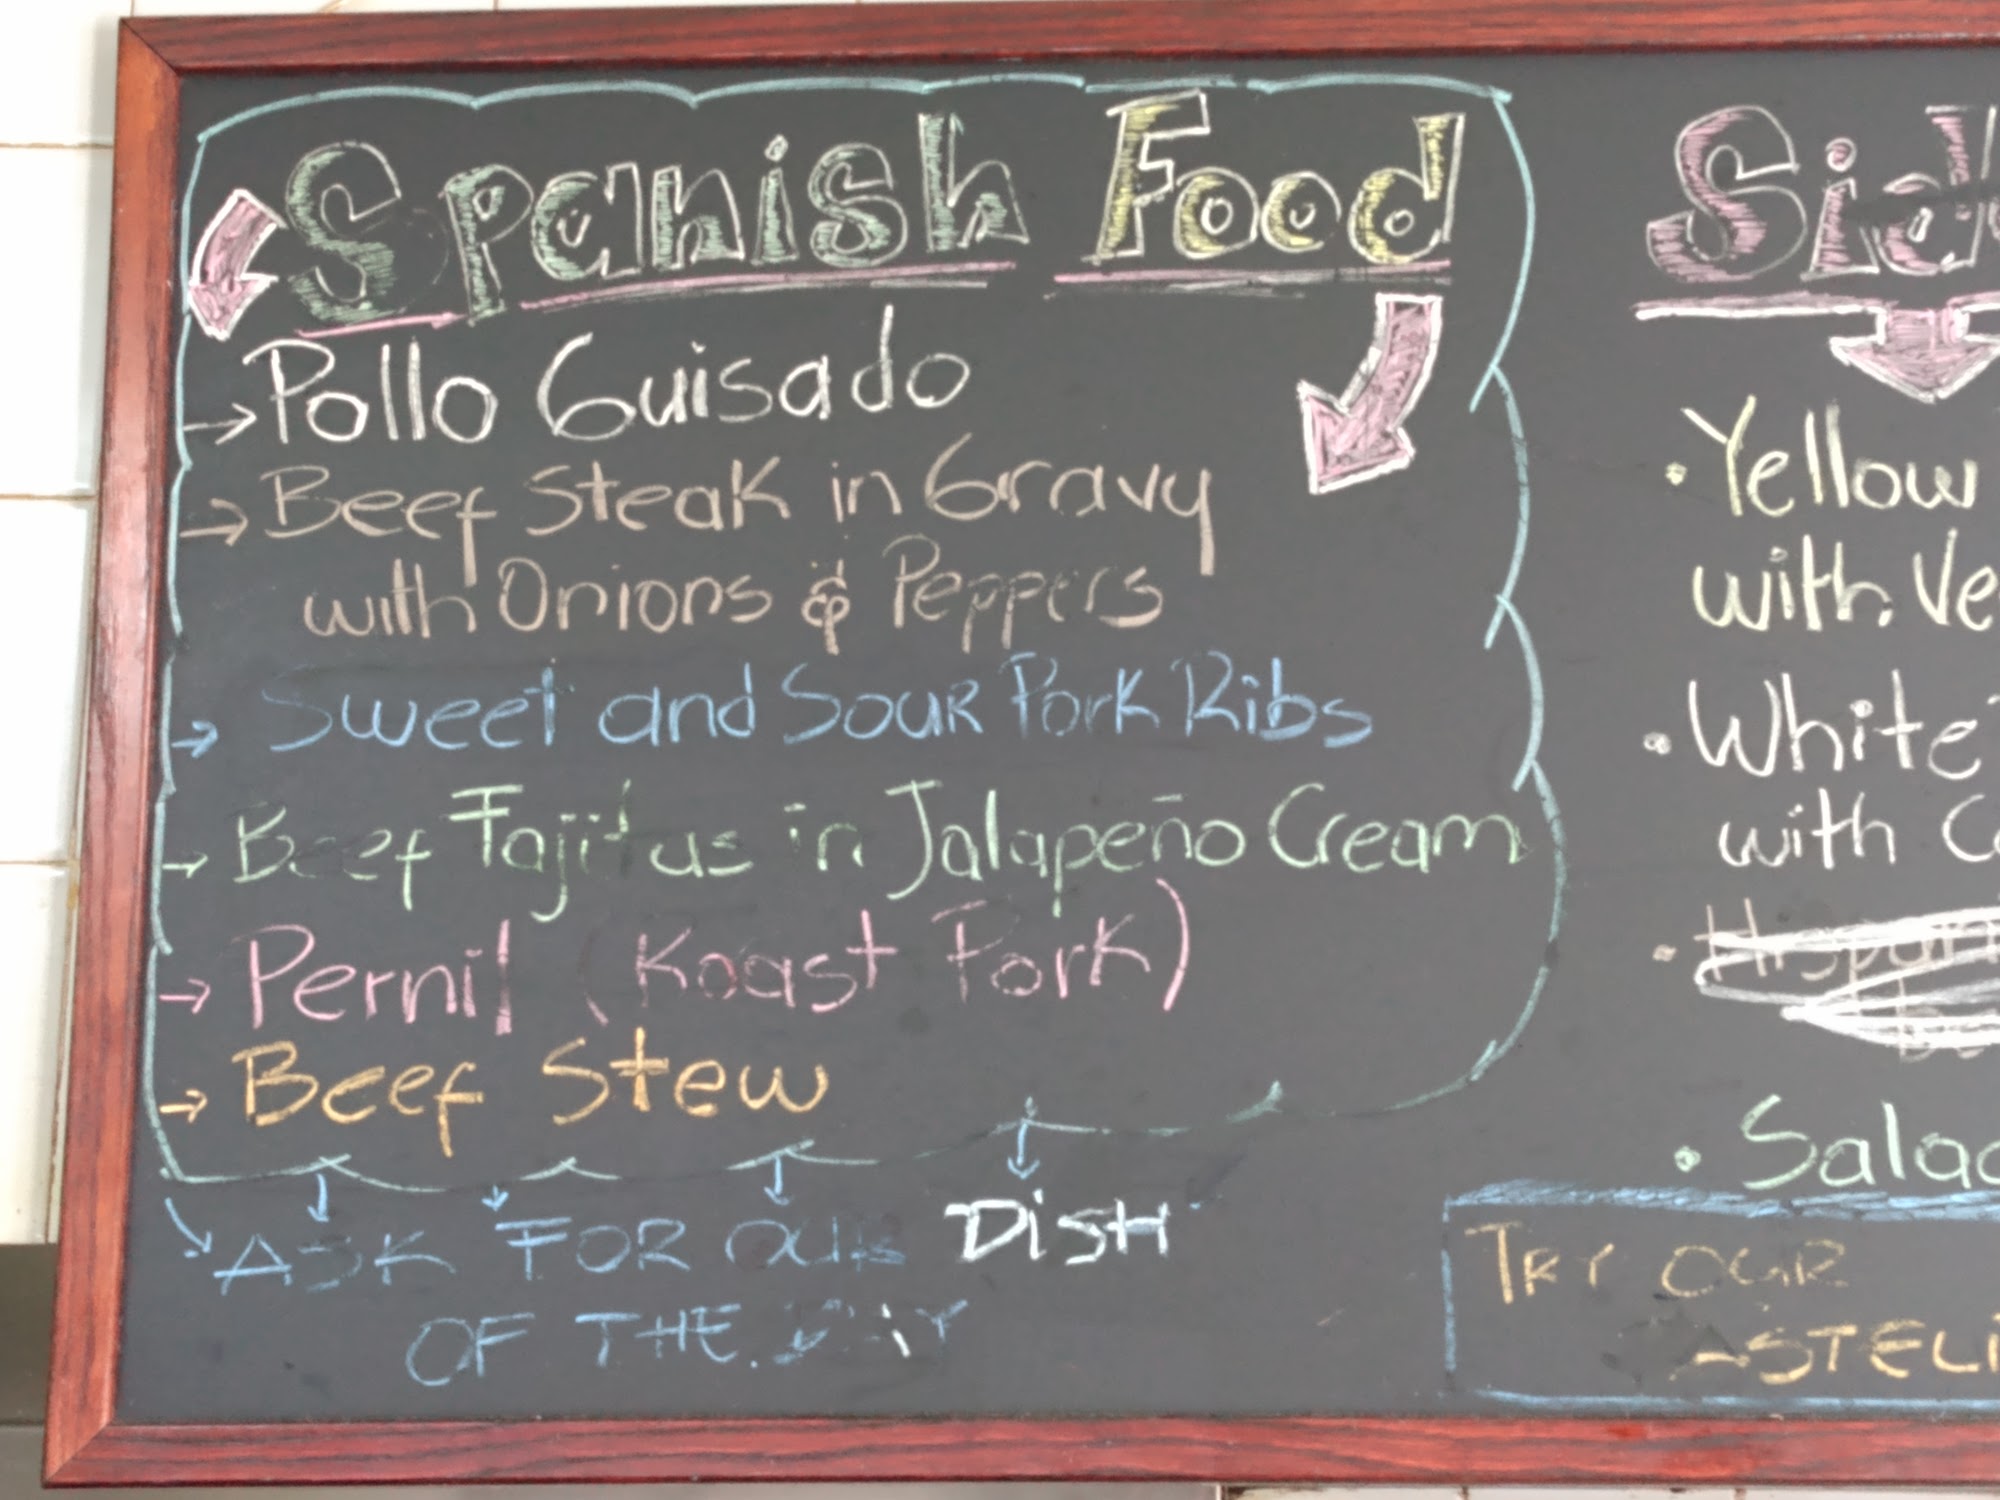 Spanish Food
→ Pollo Guisado
→ Beef Steak in Gravy
with Onions & Peppers
→ Sweet and Sour Pork Ribs
→ Beef Fajitas in Jalapeño Cream
→ Pernil (Roast Pork)
→ Beef Stew
ASK FOR OUR DISH
OF THE DAY
Sid
• Yellow
with Ve
• White
with Co
• Hispan
• Salad
TRY OUR
PASTELI